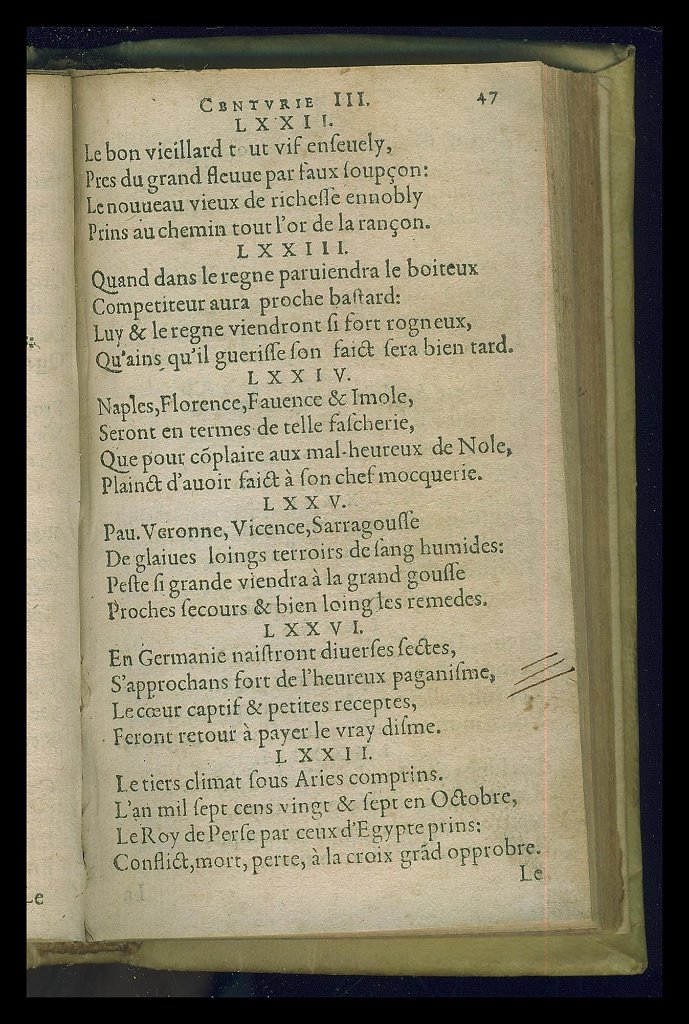 CENTVRIE III. 47
LXXII.
Le bon vieillard tout vif enſeuely,
Pres du grand fleuue par faux ſoupçon:
Le nouueau vieux de richeſſe ennobly
Prins au chemin tout l'or de la rançon.
LXXIII.
Quand dans le regne paruiendra le boiteux
Competiteur aura proche baſtard:
Luy & le regne viendront ſi fort rogneux,
Qu'ains qu'il gueriſſe ſon faict ſera bien tard.
LXXIV.
Naples, Florence, Fauence & Imole,
Seront en termes de telle faſcherie,
Que pour cõplaire aux mal-heureux de Nole,
Plainct d'auoir faict à ſon chef mocquerie.
LXXV.
Pau. Veronne, Vicence, Sarragouſſe
De glaiues loings terroirs de ſang humides:
Peſte ſi grande viendra à la grand gouſſe
Proches ſecours & bien loing les remedes.
LXXVI.
En Germanie naiſtront diuerſes ſectes,
S'approchans fort de l'heureux paganiſme,
Le cœur captif & petites receptes,
Feront retour à payer le vray diſme.
LXXII.
Le tiers climat ſous Aries comprins.
L'an mil ſept cens vingt & ſept en Octobre,
Le Roy de Perſe par ceux d'Egypte prins:
Conflict, mort, perte, à la croix grãd opprobre.
Le
Le